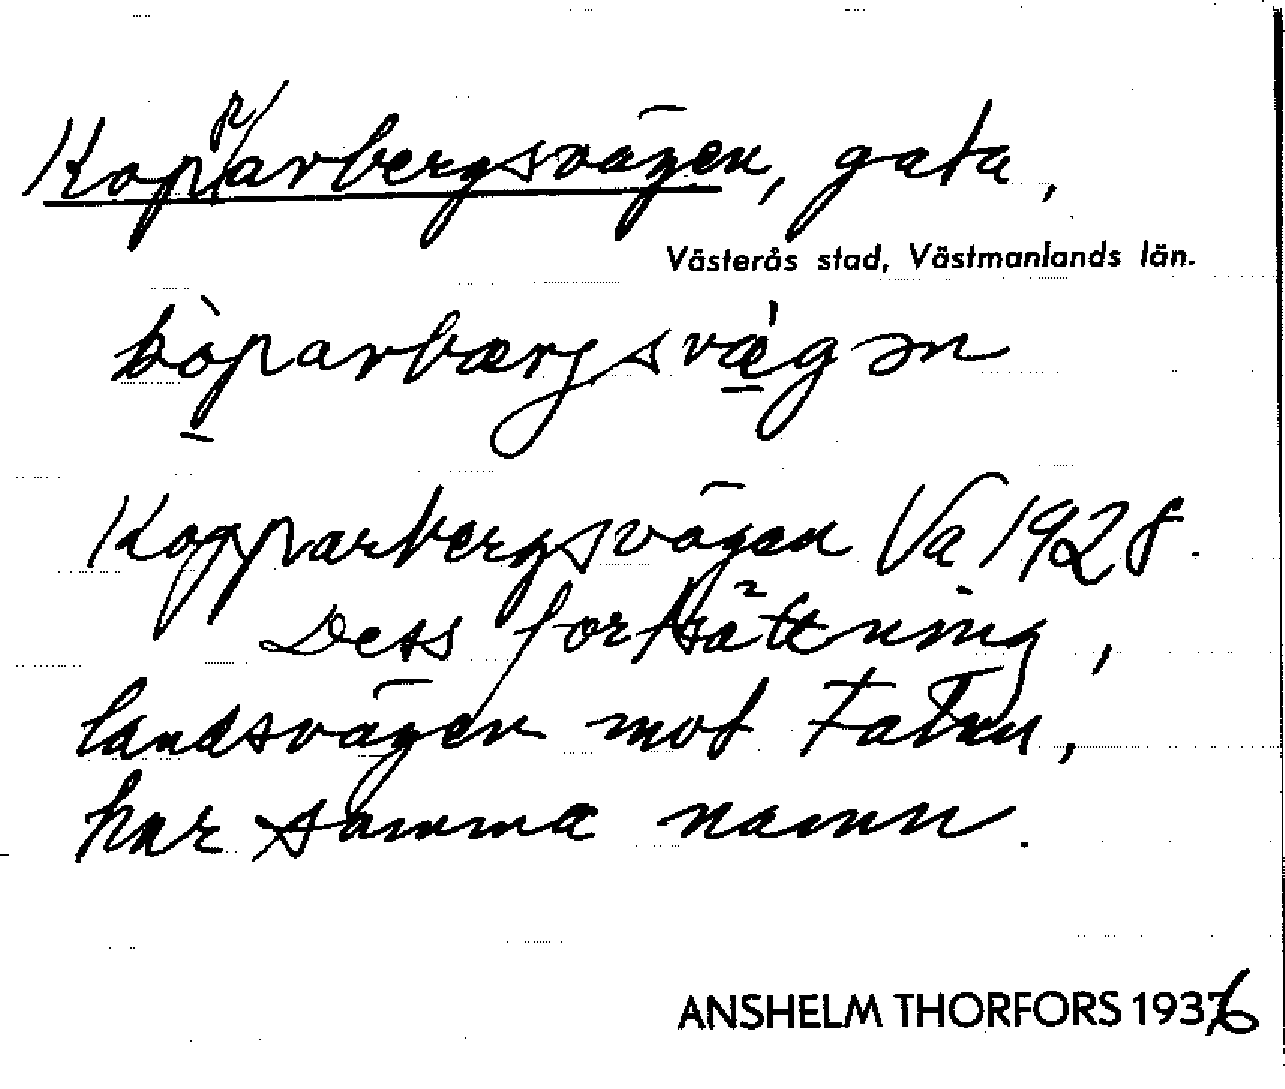 Kopparbergsvägen, gata,
Västerås stad, Västmanlands län.
kòparbærgsvæ̀gən
Kopparbergsvägen Va 1928.
Dess fortsättning,
landsvägen mot Falun,
har samma namn.
ANSHELM THORFORS 1936